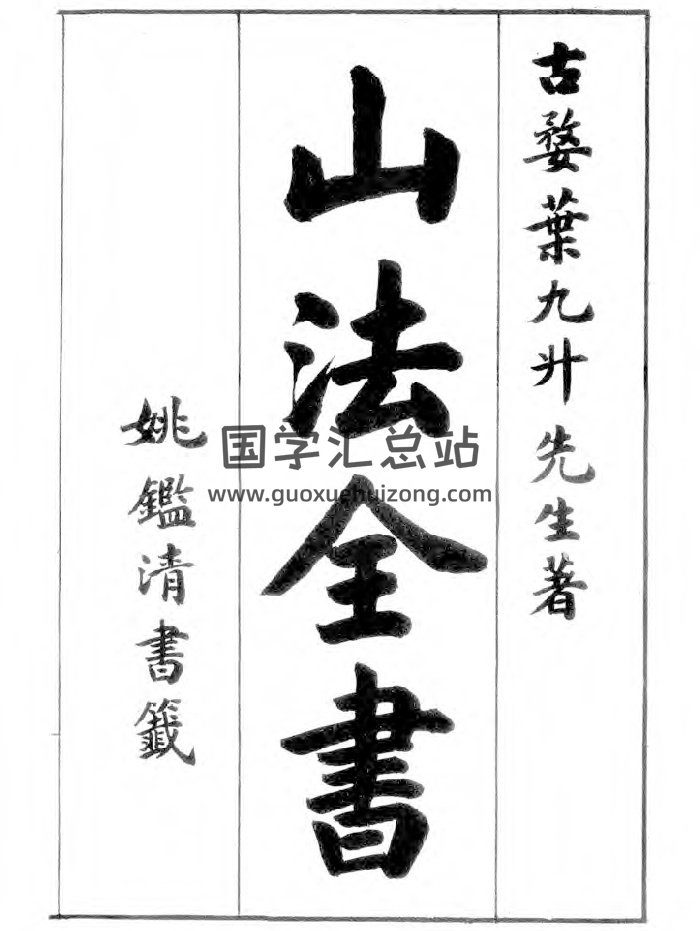 古婺葉九升先生著
山法全書
姚鑑清書籤
国学汇总站
www.guoxuehuizong.com